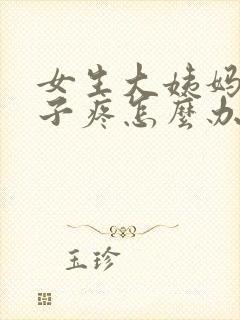 女生大姨妈
子疼怎麼办
玉珍